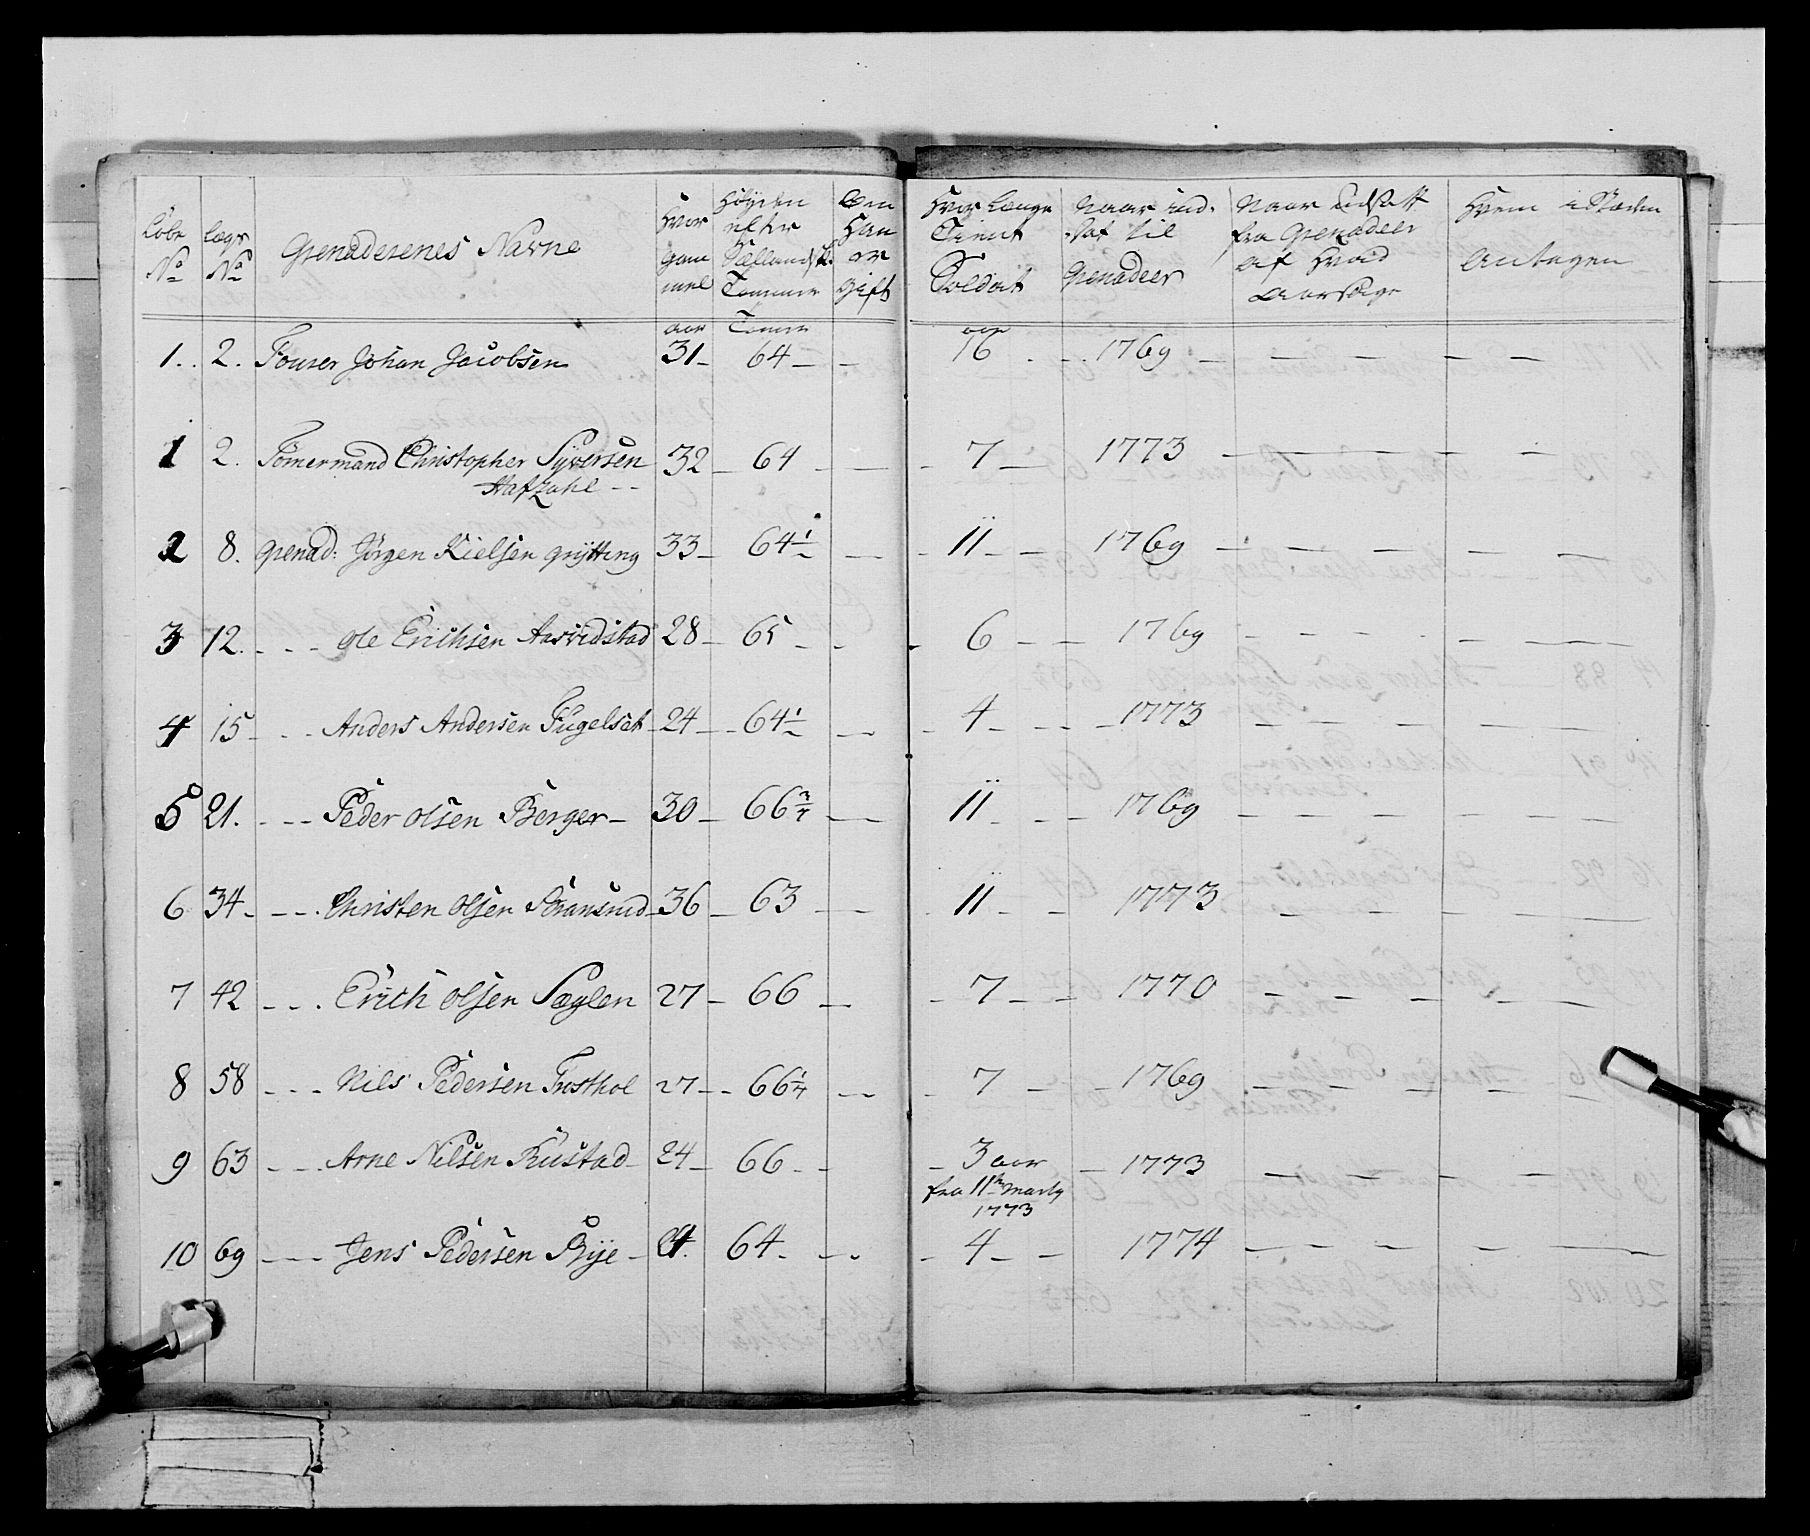 Löbe No | Lægs No | Grenaderenes Navne | Hvor gammel | Höyden efter Siællandsk. Tommer | Om Han er gift | Hvor Længe Tient Soldat | Naar ind-sat til Grenadeer | Naar Udsatt fra Grenadeer af Hvad Aarsage | Hvem i Stæden Antagen
aar Tomer aar
1. 2. Fourer Johan Jacobsen 31 – 64 – – 16 – 1769 – – – – –
1 2. Tömermand Christopher Syversen 32 – 64 – – – 7 – 1773 – – – – –
Hafzahl – –
2 8. Grenad: Jörgen Kielsen Grytting 33 – 64 1/ – – 11 – – 1769 – – – – –
3 12. – – – Ole Erichsen Aasvidstad 28 – 65 – – – 6 – – 1769 – – – – –
4 15 – – – Anders Andersen Fugelset – 24 – – 64 1/ – – 4 – – – 1773 – – – – –
5 21. – – – Peder Olsen Berger – 30 – 66 3/4 – – 11 – – – 1769 – – – – –
6 34 – – – Christen Olsen 36 – 63 – – – 11 – – 1773 – – – – –
7 42 – – – Erich Olsen Sæglen 27 – 66 – – 7 – – 1770 – – – – –
8 58 – – – Nils Pedersen Frosthol 27 – – 66 1/4 – – 7 – – 1769 – – – – –
9 63 – – – Arne Nilsen Rustad – 24 – 66 – – – 3 aar – 1773 – – – – –
fra 11te Marty
1773
10 69 – – – Jens Pedersen Rye – 24. 64 – – – – 4 – – 1774 – – – – –